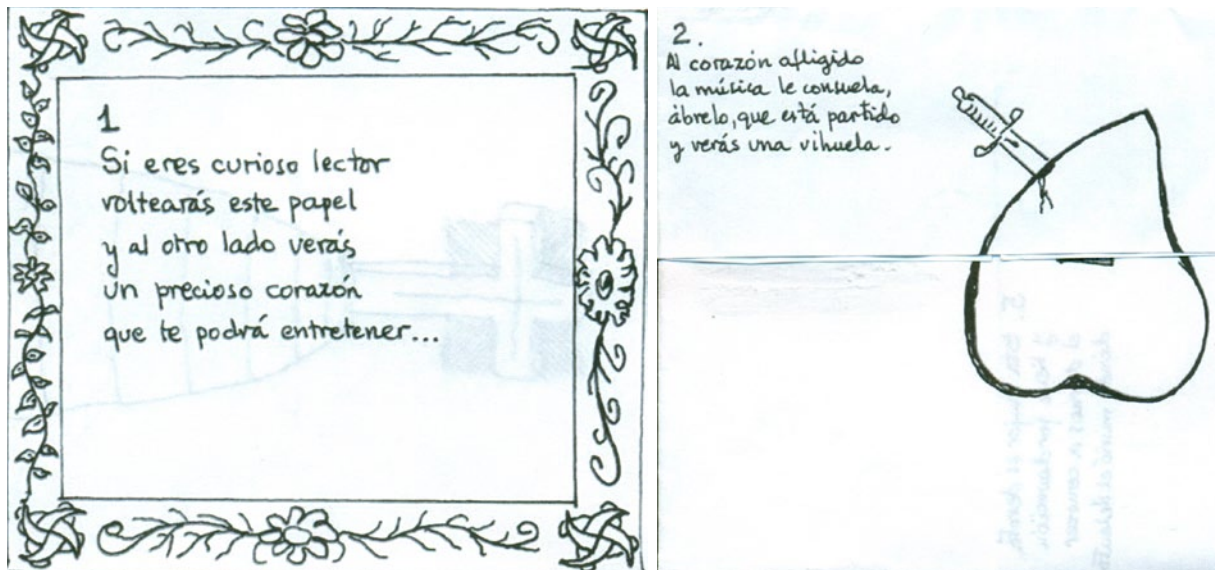 1
Si eres curioso lector
voltearás este papel
y al otro lado verás
un precioso corazón
que te podrá entretener...
2.
Al corazón afligido
la música le consuela,
ábrelo, que está partido
y verás una vihuela.